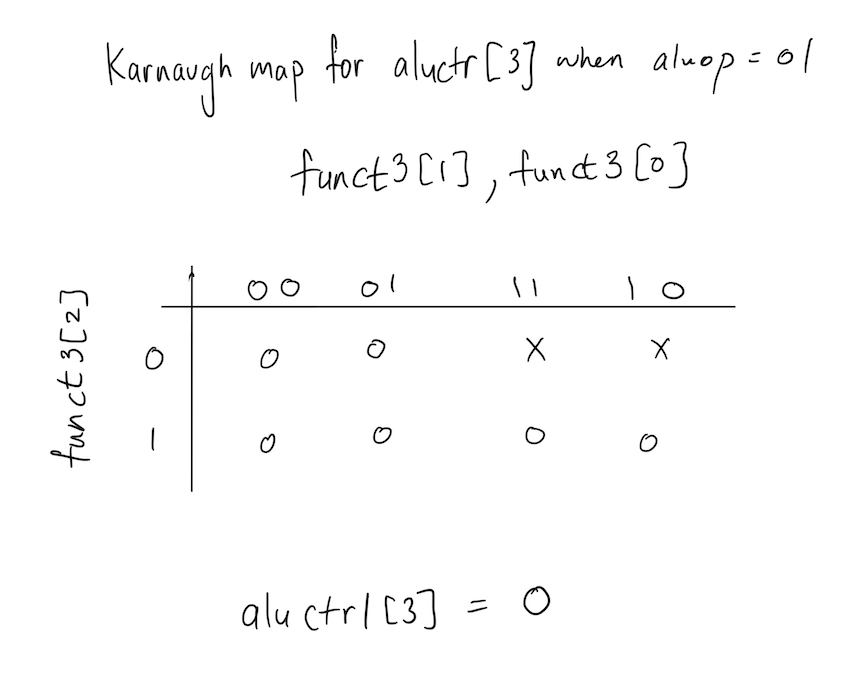 Karnaugh map for aluctr[3] when aluop = 01
funct3[1], funct3[0]
funct3[2]
00 01 11 10
0 0 0 X X
1 0 0 0 0
aluctrl[3] = 0